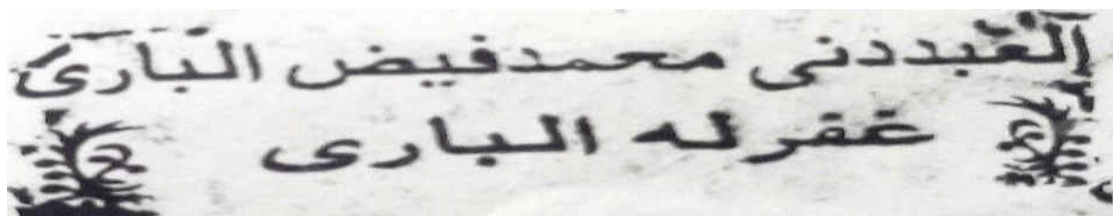 العبددنی محمدفیض الباری
غفرله الباری